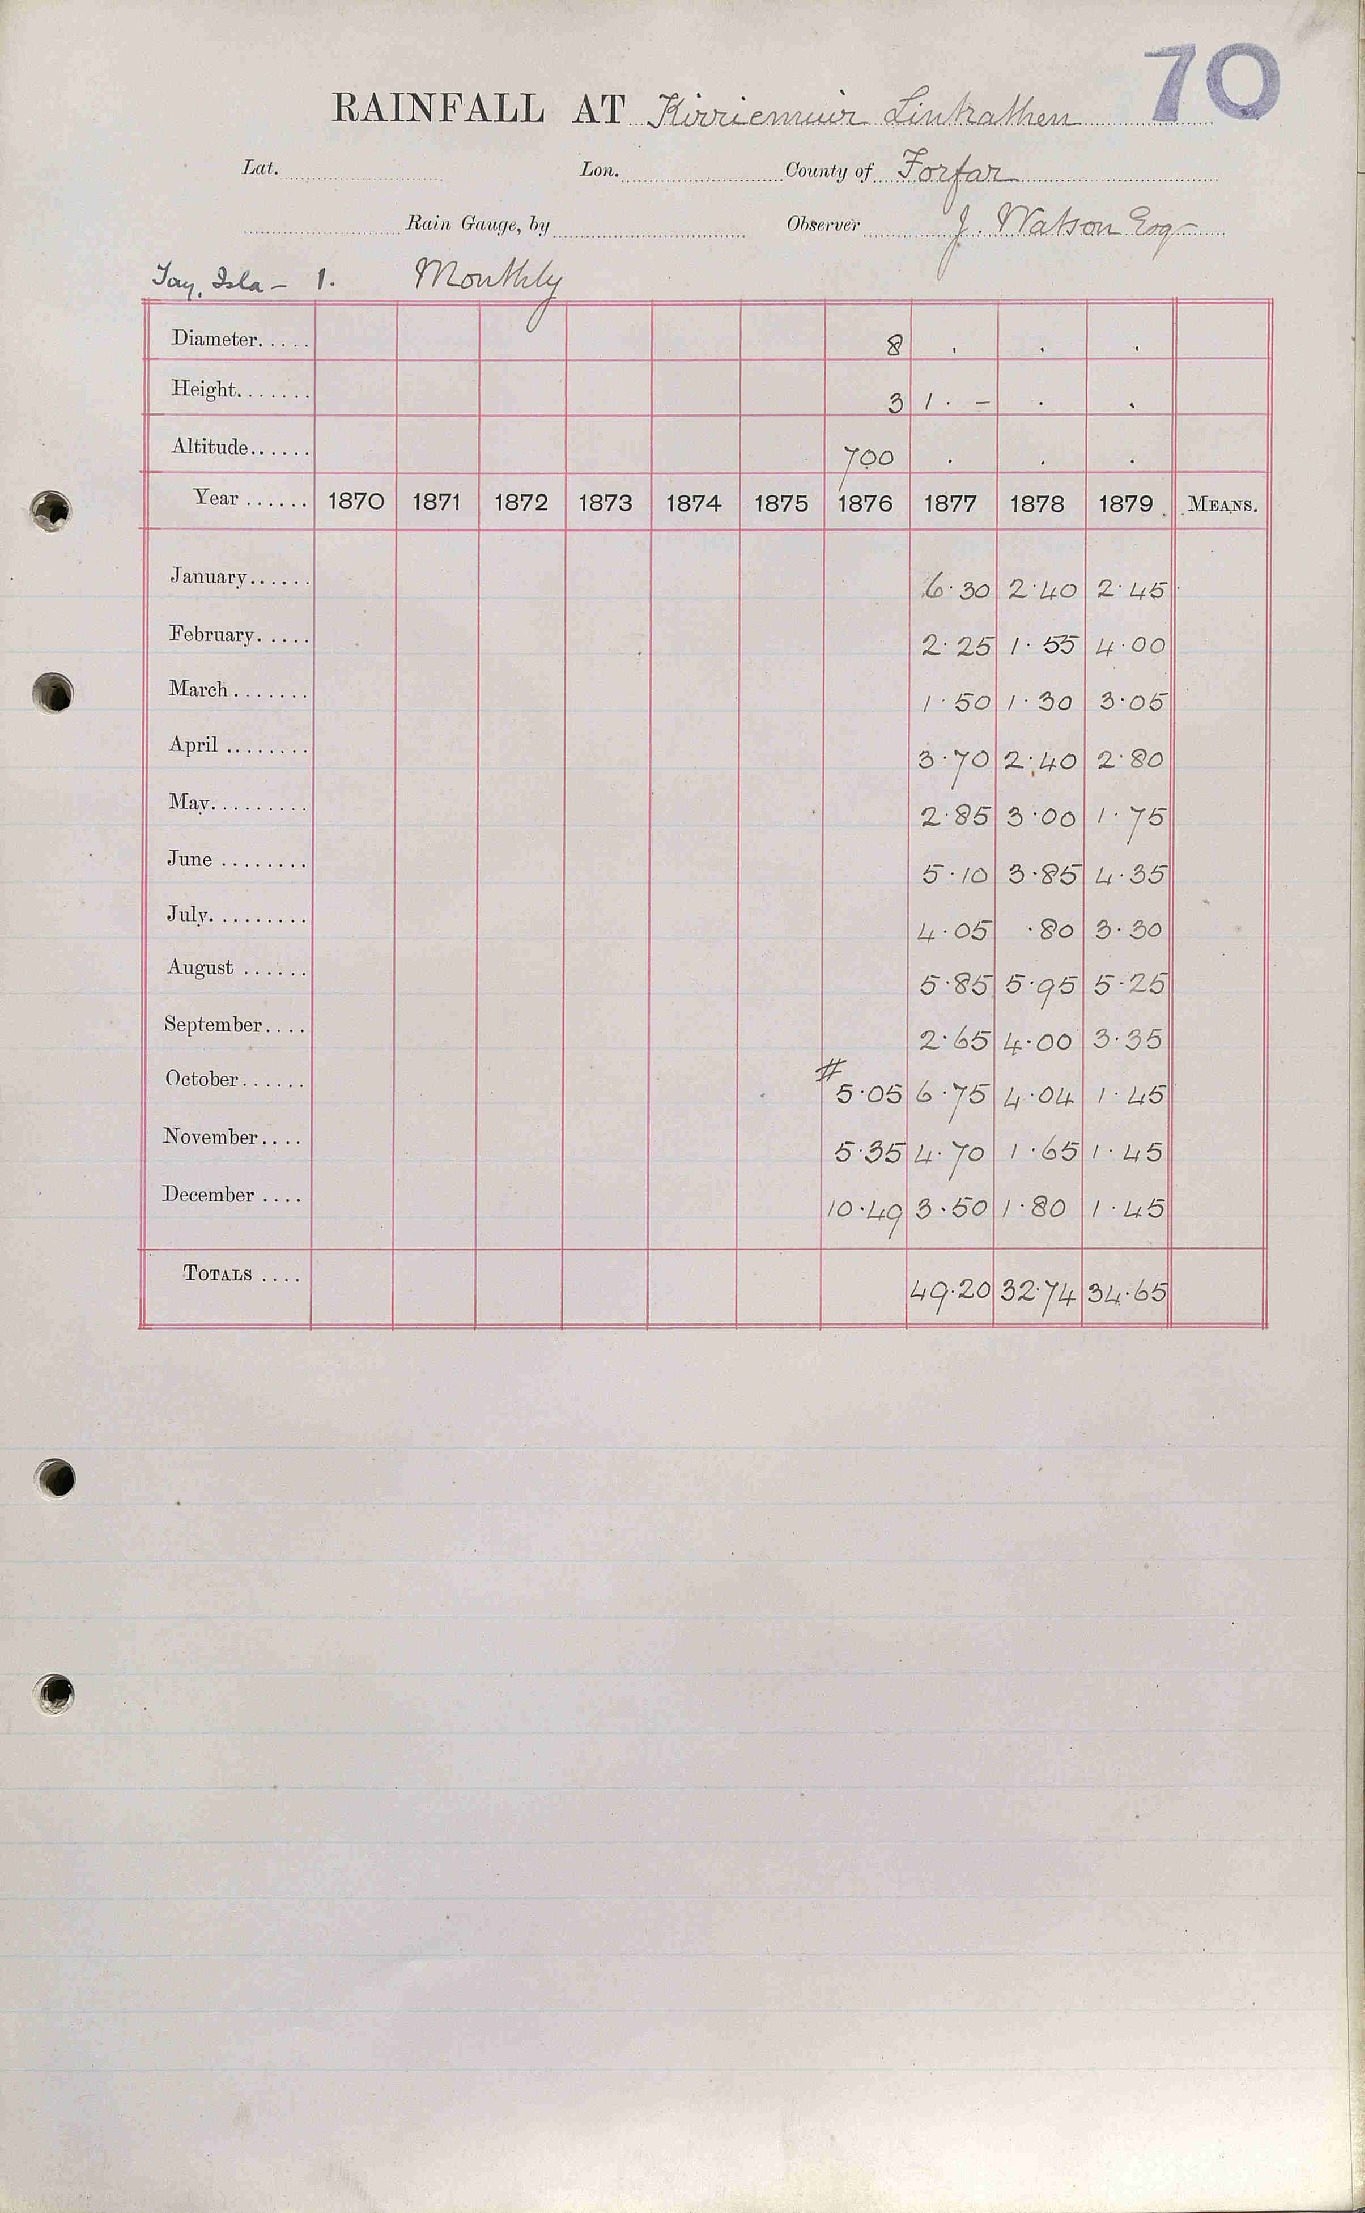 70
RAINFALL AT Kirriemuir Lintrathen
Lat. Lon. County of Forfar
Rain Gauge, by Observer J. Watson Esq
Tay, Isla - 1. Monthly
Diameter..... 8 . . .
Height....... 3 1 · - . .
Altitude...... 700 . . .
Year ...... 1870 1871 1872 1873 1874 1875 1876 1877 1878 1879 MEANS.
January...... 6·30 2·40 2·45
February..... 2·25 1·55 4·00
March ....... 1·50 1·30 3·05
April ........ 3·70 2·40 2·80
May......... 2·85 3·00 1·75
June ........ 5·10 3·85 4·35
July......... 4·05 ·80 3·30
August ...... 5·85 5·95 5·25
September.... 2·65 4·00 3·35
October...... #5·05 6·75 4·04 1·45
November.... 5·35 4·70 1·65 1·45
December .... 10·49 3·50 1·80 1·45
TOTALS .... 49·20 32·74 34·65